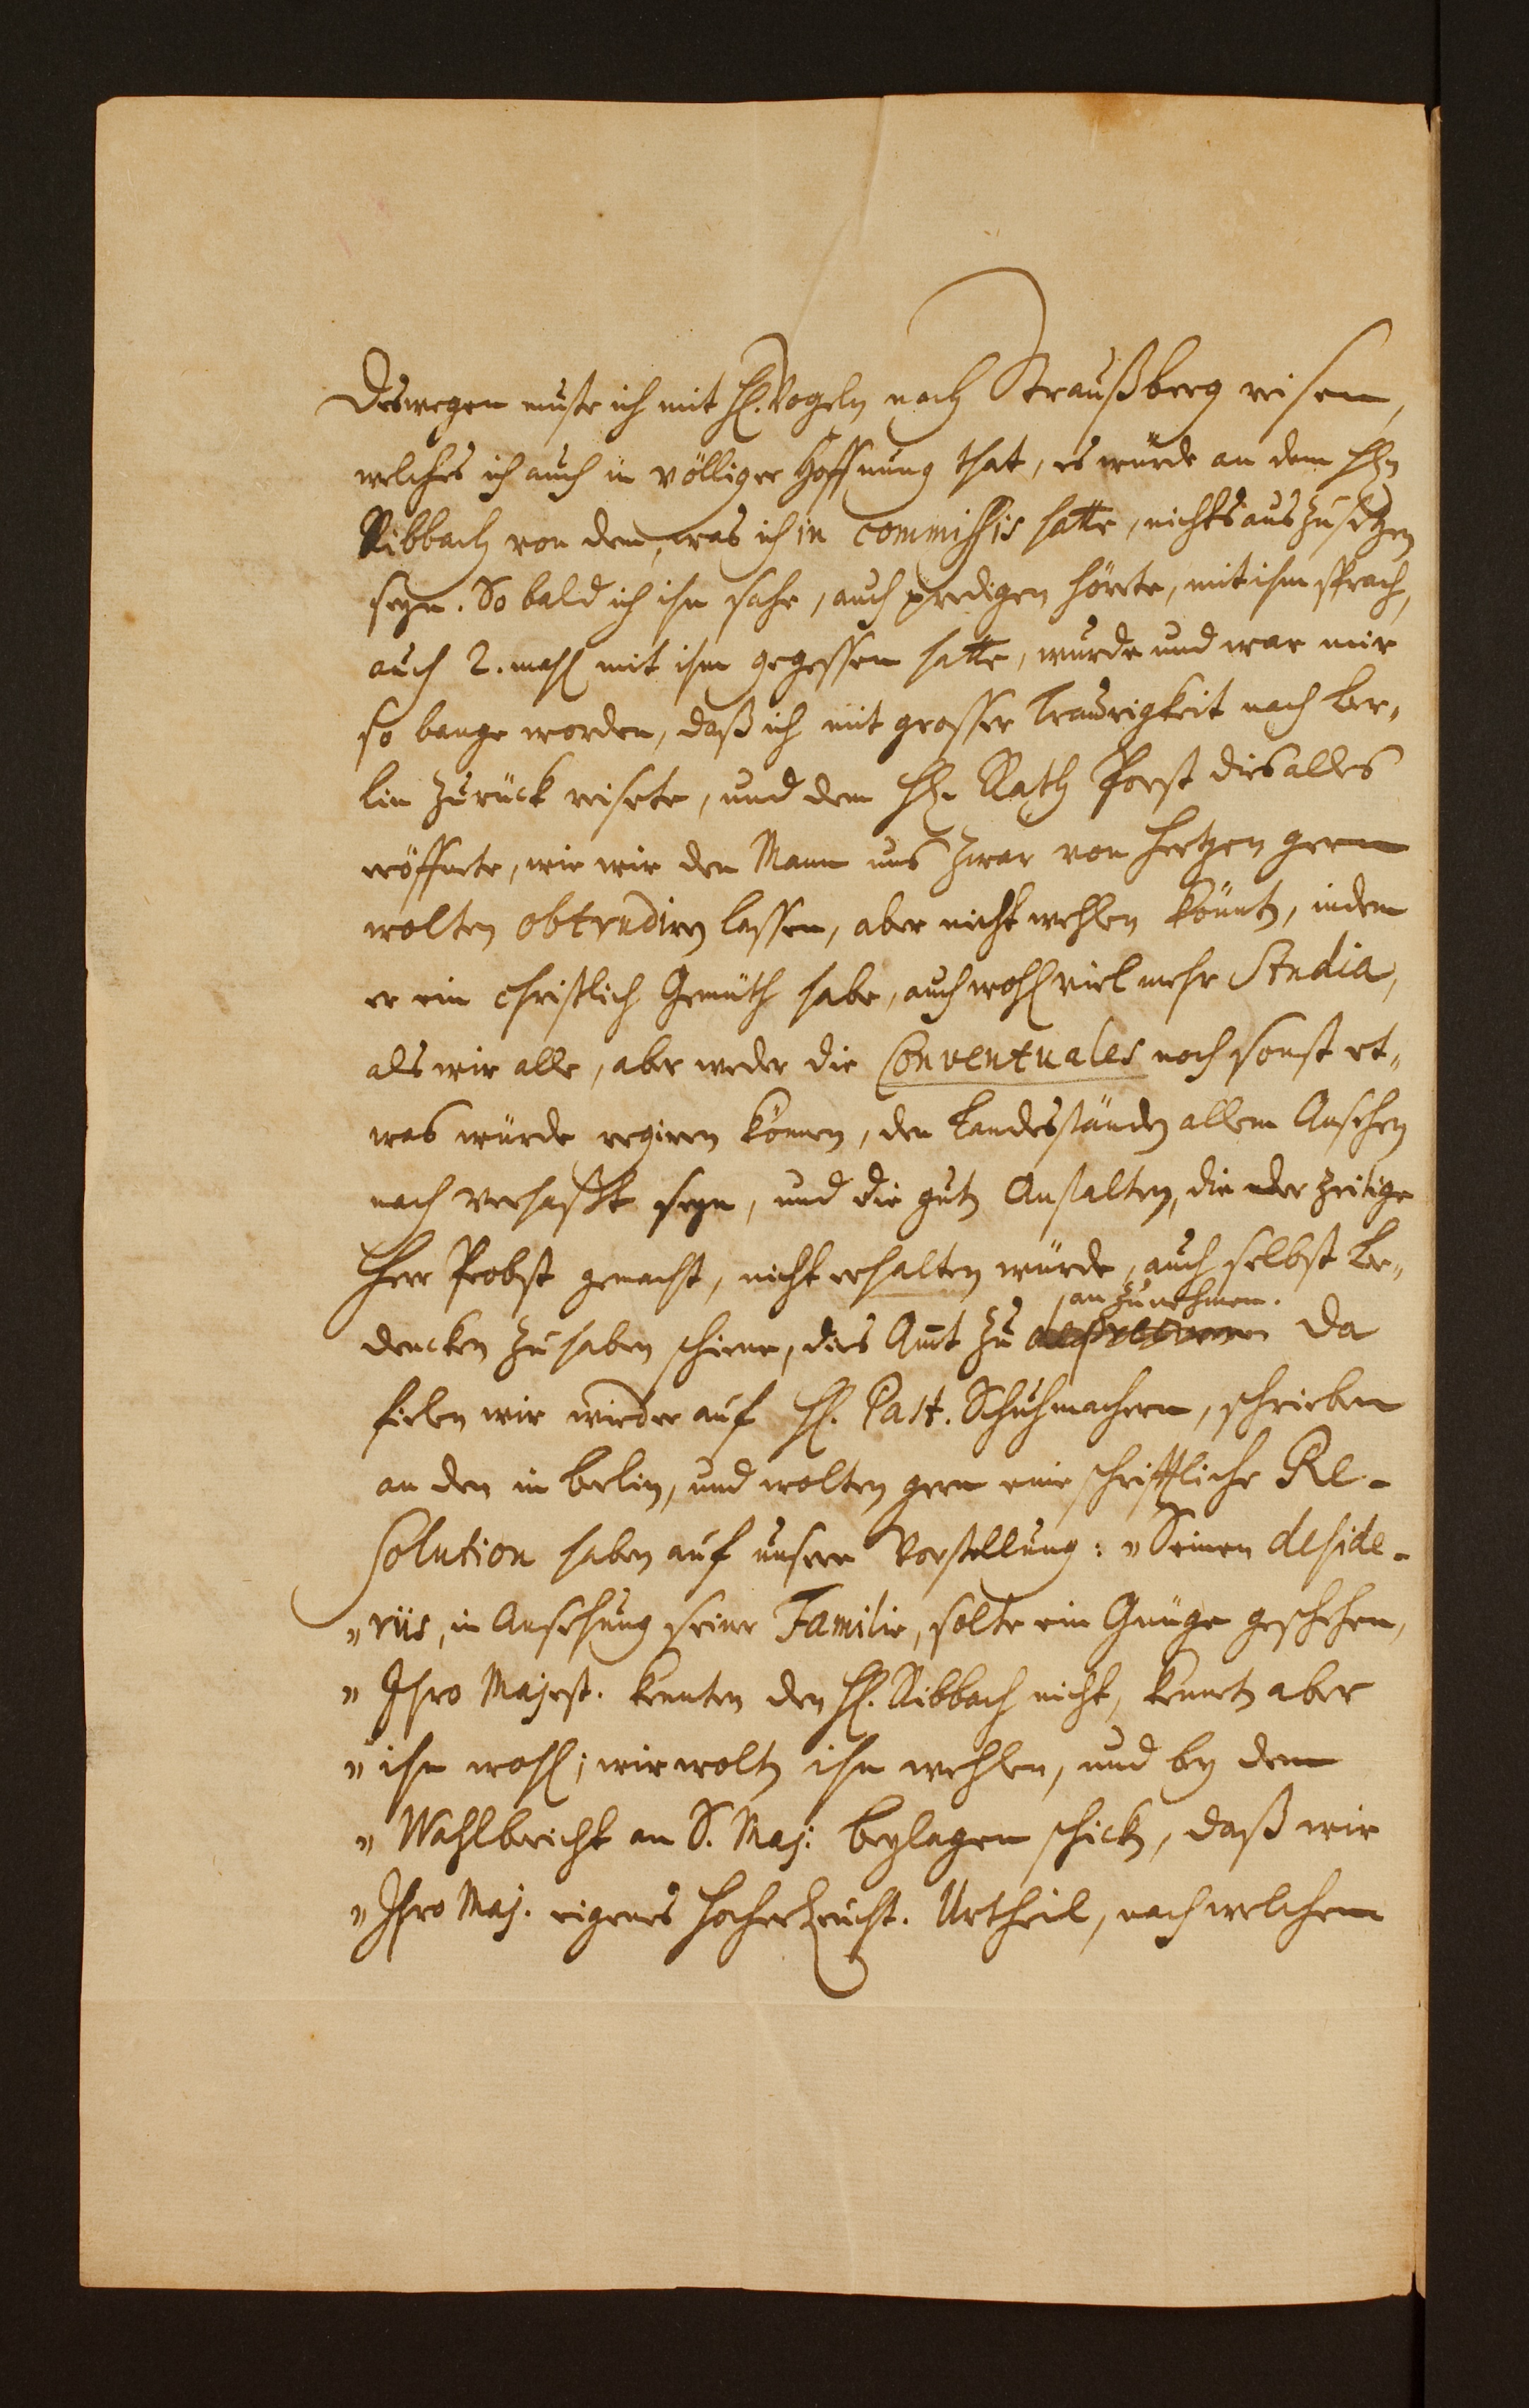 Deswegen muste ich mit H. Vogeln nach Straußberg reisen,
welches ich auch in völliger Hoffnung that, es würde an dem Hn
Ribbach von dem, was ich in commissis hatte, nichts auszusetzen
seyn. So bald ich ihn sahe, auch predigen hörete, mit ihm sprach,
auch 2. mahl mit ihm gegessen hatte, wurde und war mir
so bange worden, daß ich mit grosser Traurigkeit nach Ber„
lin zurück reisete, und dem H. Rath Porst dis alles
eröffnete, wie wir den Mann uns zwar von Hertzen gern
wolten obtrudiren lassen, aber nicht wehlen könnten, indem
er ein christlich Gemüth habe, auch wohl viel mehr Studia,
als wir alle, aber weder die Conventuales noch sonst et„
was würde regiren können, den Landesständen allem Ansehen
nach verhasst seyn, und die guten Anstalten, die der zeitige
Herr Probst gemacht, nicht erhalten würde, auch selbst Be„
an zunehmen.
dencken zu haben schiene, dis Amt zu Da
fielen wir wieder auf H. Past. Schuhmachern, schrieben
an den in Berlin, und wolten gern eine schrifftliche Re-
solution haben auf unsere Vorstellung: „Seinen deside-
„riis, in Ansehung seiner Familie, solte ein Gnüge geschehen,
„Ihro Majest. kenten den H. Ribbach nicht, kennten aber
„ihn wohl; wir wolten ihn wehlen, und bey dem
„Wahlbericht an S. Maj: beylagen schicken, daß wir
„Ihro Maj. eigenes hocherleucht. Urtheil, nach welchem